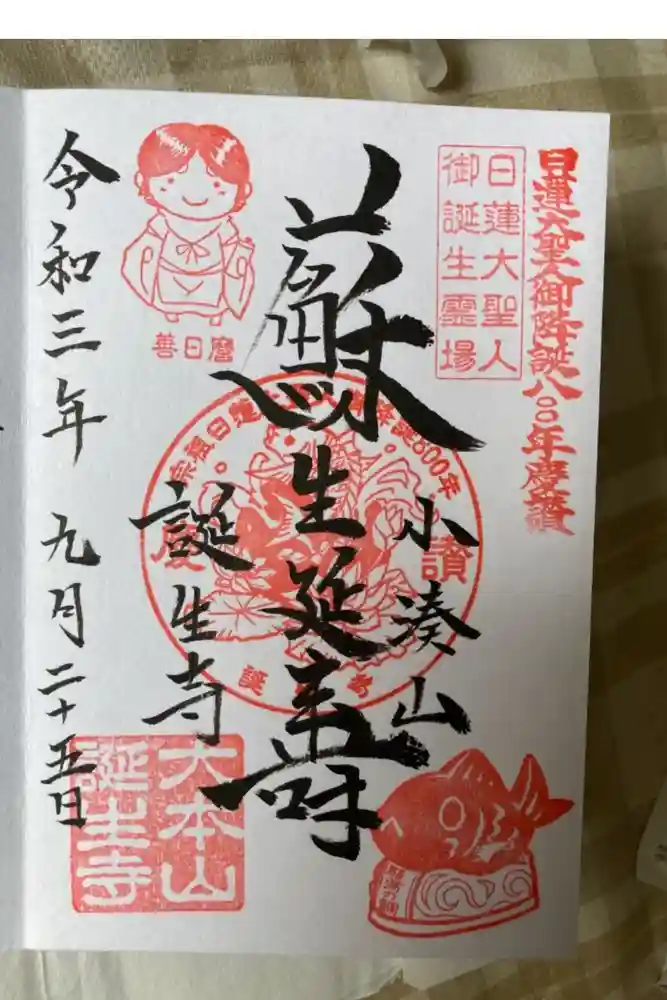 日蓮大聖人御降誕八〇〇年慶讃
日蓮大聖人
御誕生霊場
小湊山
蘇生延寿
誕生寺
宗祖日蓮大聖人御降誕800年
慶讃
誕生寺
善日麿
令和三年 九月二十五日
大本山
誕生寺